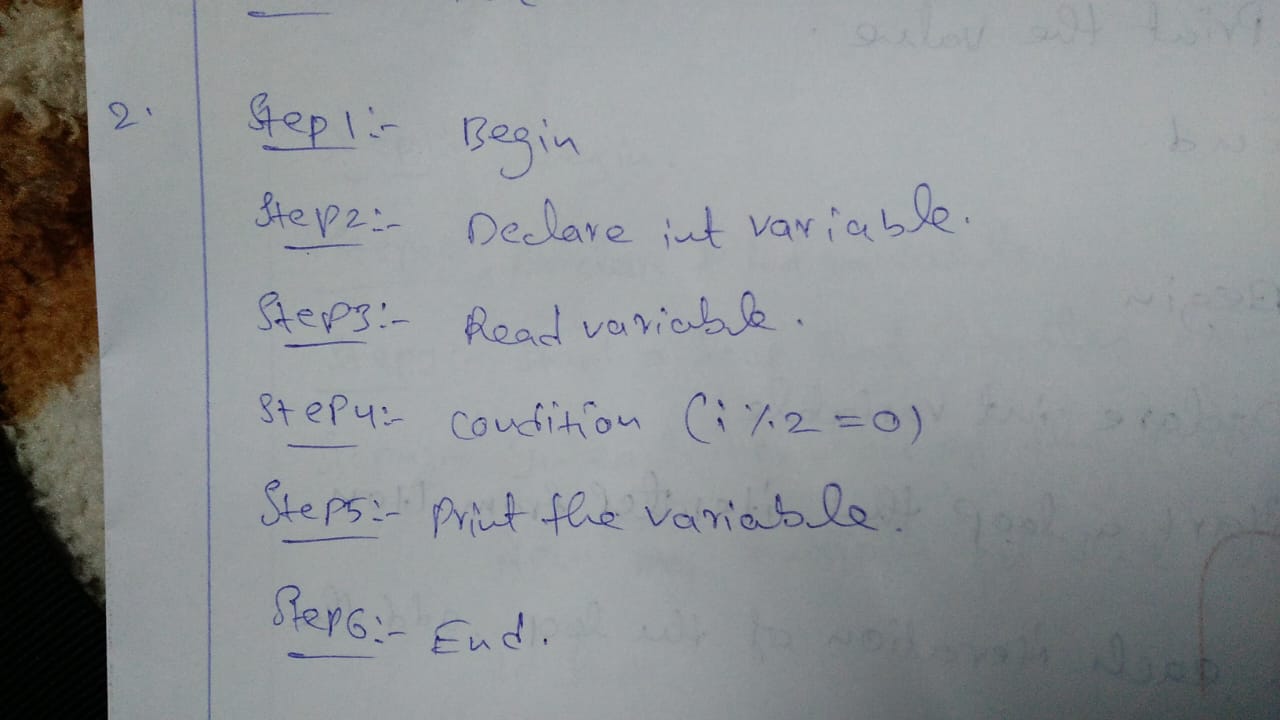 2.
Step1:- Begin
Step2:- Declare int variable.
Step3:- Read variable.
Step4:- condition (i%2=0)
Step5:- print the variable.
Step6:- End.